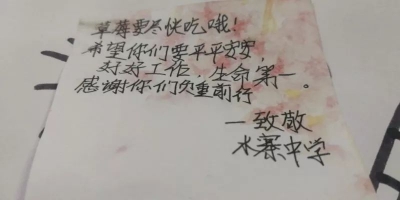 草莓要尽快吃哦！
希望你们要平平安安，
好好工作，生命第一。
感谢你们负重前行
一致敬
水寨中学